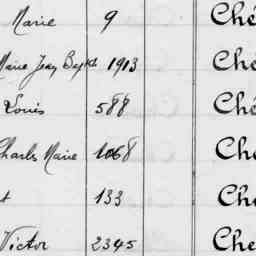 Marie 9 Ché
Marie Jean Bapte 1913 Ché
Louis 588 Ché
Charles Marie 1068 Che
t 133 Che
Victor 2345 Che